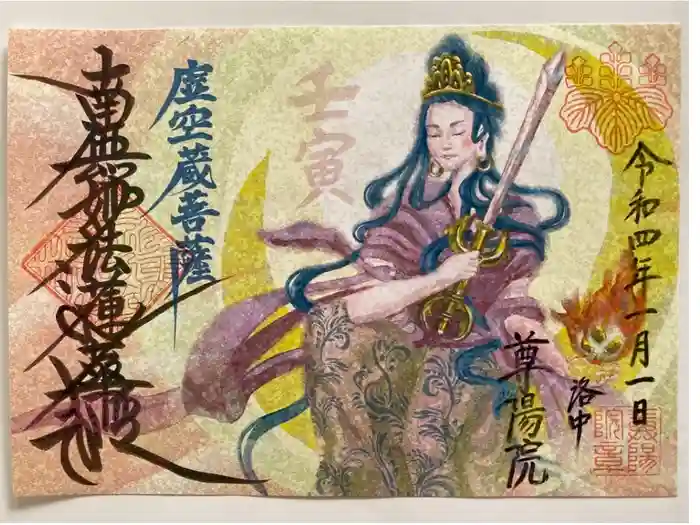 令和四年一月一日
洛中
尊陽院
壬寅
虚空蔵菩薩
南無妙法蓮華経